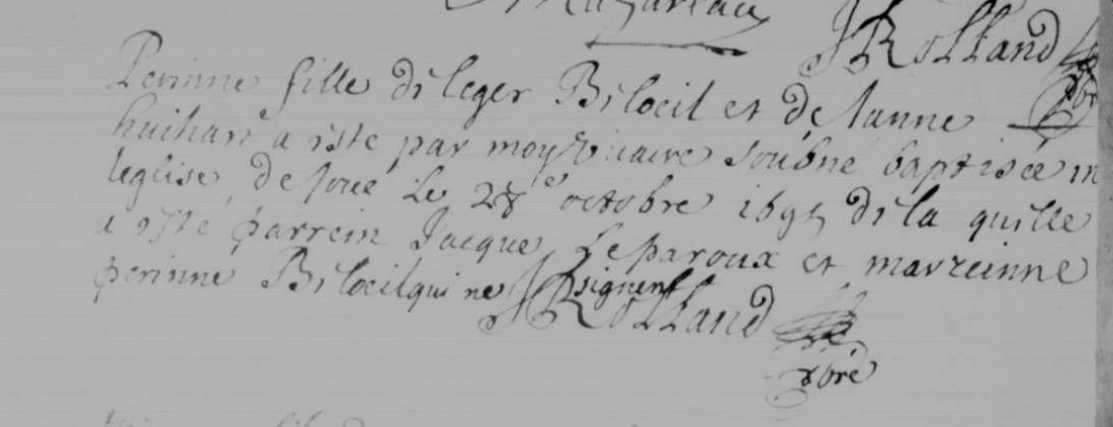 JRolland
Perinne fille di leger Biloeil et de Janne
huihan a esté par moy vicaire soubné baptisée en
leglise de joué le 28e octobre 1695 di la quille
a esté parrein Jacque Leparoux et marreinne
perinne Biloeil qui ne signent
JRolland
pbre